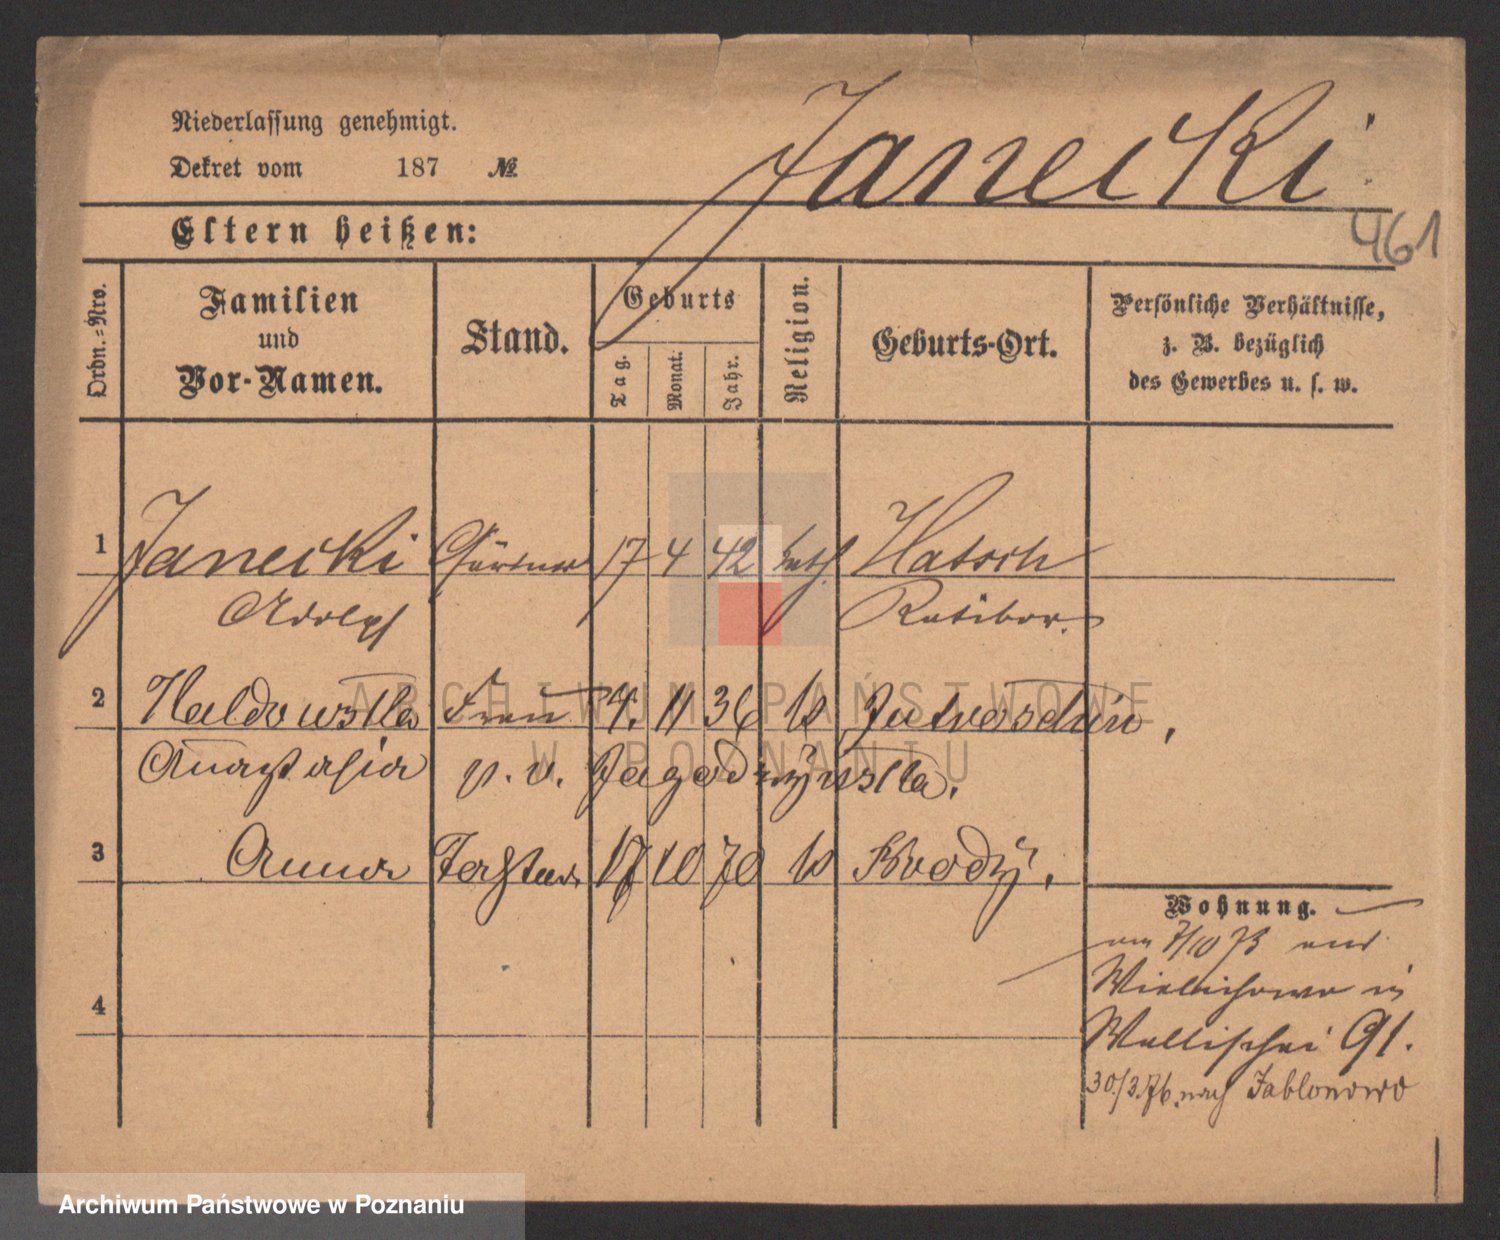 Niederlassung genehmigt.
Dekret vom 187 №
Janecki
461
Eltern heißen:
Ordn.-Nro.
Familien
und
Vor-Namen.
Stand.
Geburts
Tag.
Monat.
Jahr.
Religion.
Geburts-Ort.
Persönliche Verhältnisse,
z. B. bezüglich
des Gewerbes u. s. w.
1 Janecki Gärtner 17 4 42 kath. Hatsch
Adolph Ratibor.
2 Frau 4. 11 36 k Jutroschin,
Anastasia v. v. Jagodzynska.
3 Anna Tochter 17 10 70 k Brody.
4
Wohnung.
am 7/10 73 aus
Wielichowo in
Wallischei 91.
30/3.76. nach Jablonowo
ARCHIWUM PAŃSTWOWE
W POZNANIU
Archiwum Państwowe w Poznaniu